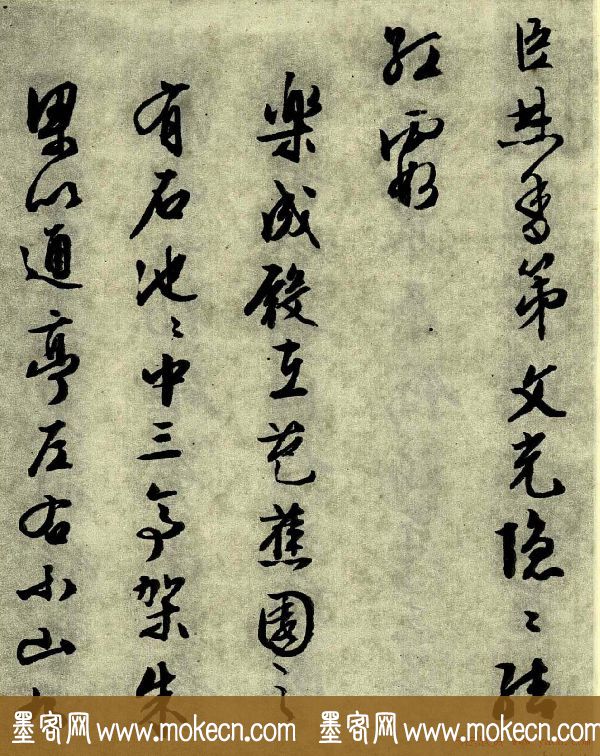 臣焚第文光隱〻結
紅霞
樂成殿在芭蕉園之
有石池〻中三亭架朱
梁以通亭左右小山
墨客网 www.mokecn.com 墨客网 www.mokecn.com